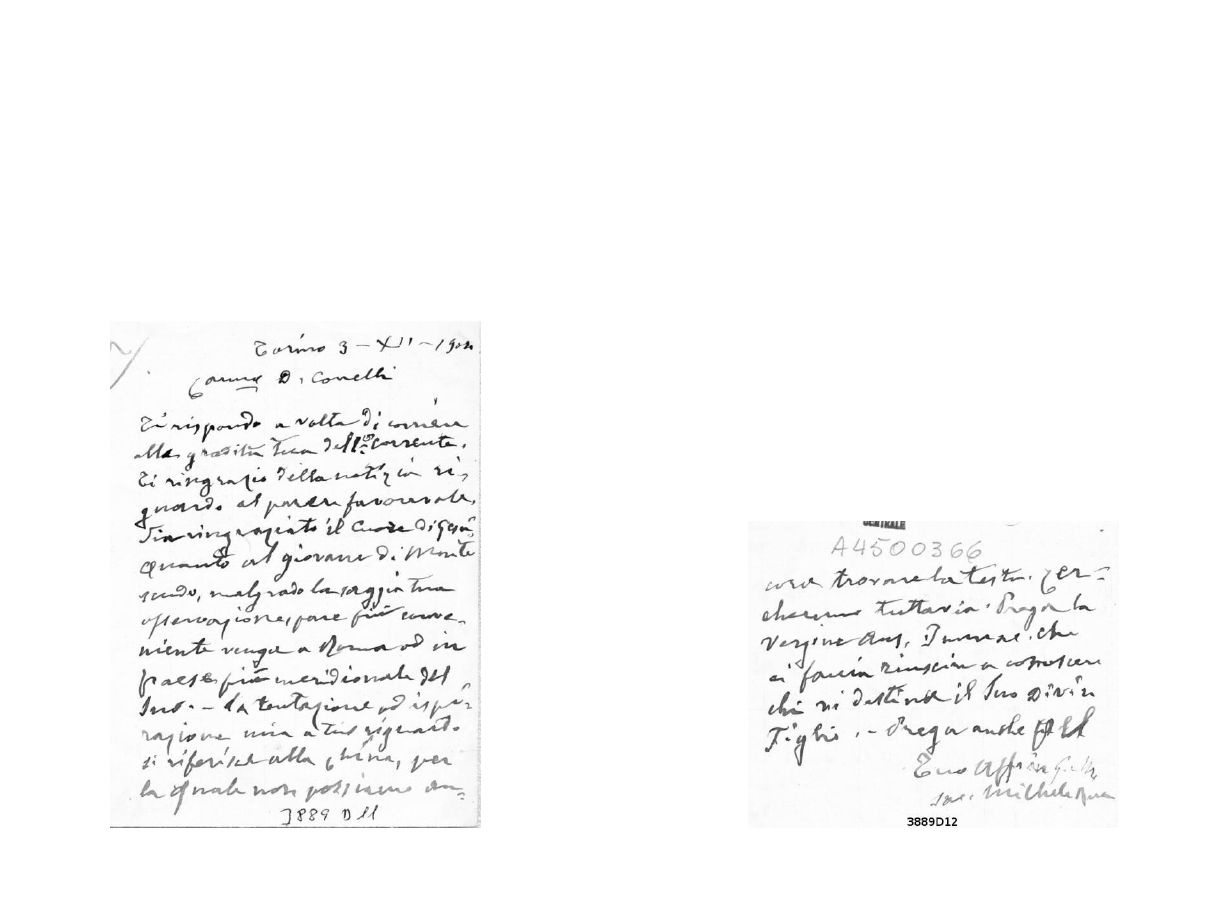 Torino 3 - XII - 190
Carmo D. Conelli
Ti rispondo a volta di corriere
alla gradita tua dell' 1º corrente.
Ti ringrazio della notizia ri,
guardo al parere favorevole,
Sia ringraziato il Cuore di Gesù,
Quanto al giovane di Monte
scudo, malgrado la saggia tua
osservazione, pare più conve-
niente venga a Roma od in
paese più meridionale del
Suo. - La tentazione od ispi-
razione mia a tuo riguardo
si riferisce alla China, per
la quale non possiamo an=
3889 D 11
CENTRALE
A4500366
cora trovare la testa. Cer=
cheremo tuttavia. Prega la
Vergine Aus. Immac. che
ci faccia riuscire a conoscere
chi vi destina il Suo Divin
Figlio. - Prega anche pel
Tuo Aff.mo in G. e M.
Sac. Michele Rua
3889D12